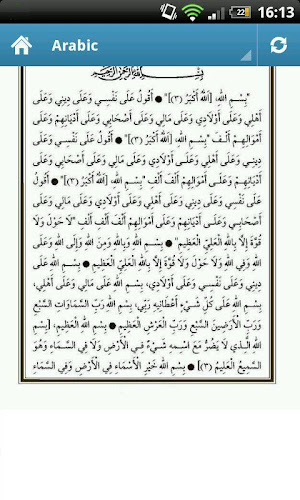 16:13
22
Arabic
بِسْمِ اللهِ الرَّحْمٰنِ الرَّحِيْمِ
"بِسْمِ اللهِ، [اَللهُ أَكْبَرُ (٣)]" ● أَقُولُ عَلَى نَفْسِي وَعَلَى دِينِي وَعَلَى
أَهْلِي وَعَلَى أَوْلَادِي وَعَلَى مَالِي وَعَلَى أَصْحَابِي وَعَلَى أَدْيَانِهِمْ وَعَلَى
أَمْوَالِهِمْ أَلْفَ "بِسْمِ اللهِ، [اَللهُ أَكْبَرُ (٣)]" ● أَقُولُ عَلَى نَفْسِي وَعَلَى
دِينِي وَعَلَى أَهْلِي وَعَلَى أَوْلَادِي وَعَلَى مَالِي وَعَلَى أَصْحَابِي وَعَلَى
أَدْيَانِهِمْ وَعَلَى أَمْوَالِهِمْ أَلْفَ أَلْفِ "بِسْمِ اللهِ، [اَللهُ أَكْبَرُ (٣)]" ● أَقُولُ
عَلَى نَفْسِي وَعَلَى دِينِي وَعَلَى أَهْلِي وَعَلَى أَوْلَادِي وَعَلَى مَالِي وَعَلَى
أَصْحَابِي وَعَلَى أَدْيَانِهِمْ وَعَلَى أَمْوَالِهِمْ أَلْفَ أَلْفِ أَلْفِ "لَا حَوْلَ وَلَا
قُوَّةَ إِلَّا بِاللهِ الْعَلِيِّ الْعَظِيمِ" ● بِسْمِ اللهِ وَبِاللهِ وَمِنَ اللهِ وَإِلَى اللهِ وَعَلَى اللهِ
وَفِي اللهِ وَلَا حَوْلَ وَلَا قُوَّةَ إِلَّا بِاللهِ الْعَلِيِّ الْعَظِيمِ ● بِسْمِ اللهِ عَلَى دِينِي
وَعَلَى نَفْسِي وَعَلَى أَوْلَادِي، بِسْمِ اللهِ عَلَى مَالِي وَعَلَى أَهْلِي،
بِسْمِ اللهِ عَلَى كُلِّ شَيْءٍ أَعْطَانِيهِ رَبِّي، بِسْمِ اللهِ رَبِّ السَّمَاوَاتِ السَّبْعِ
وَرَبِّ الْأَرَضِينَ السَّبْعِ وَرَبِّ الْعَرْشِ الْعَظِيمِ ● بِسْمِ اللهِ الْعَظِيمِ، [بِسْمِ
اللهِ الَّذِي لَا يَضُرُّ مَعَ اسْمِهِ شَيْءٌ فِي الْأَرْضِ وَلَا فِي السَّمَاءِ وَهُوَ
السَّمِيعُ الْعَلِيمُ (٣)] ● بِسْمِ اللهِ خَيْرِ الْأَسْمَاءِ فِي الْأَرْضِ وَفِي السَّمَاءِ